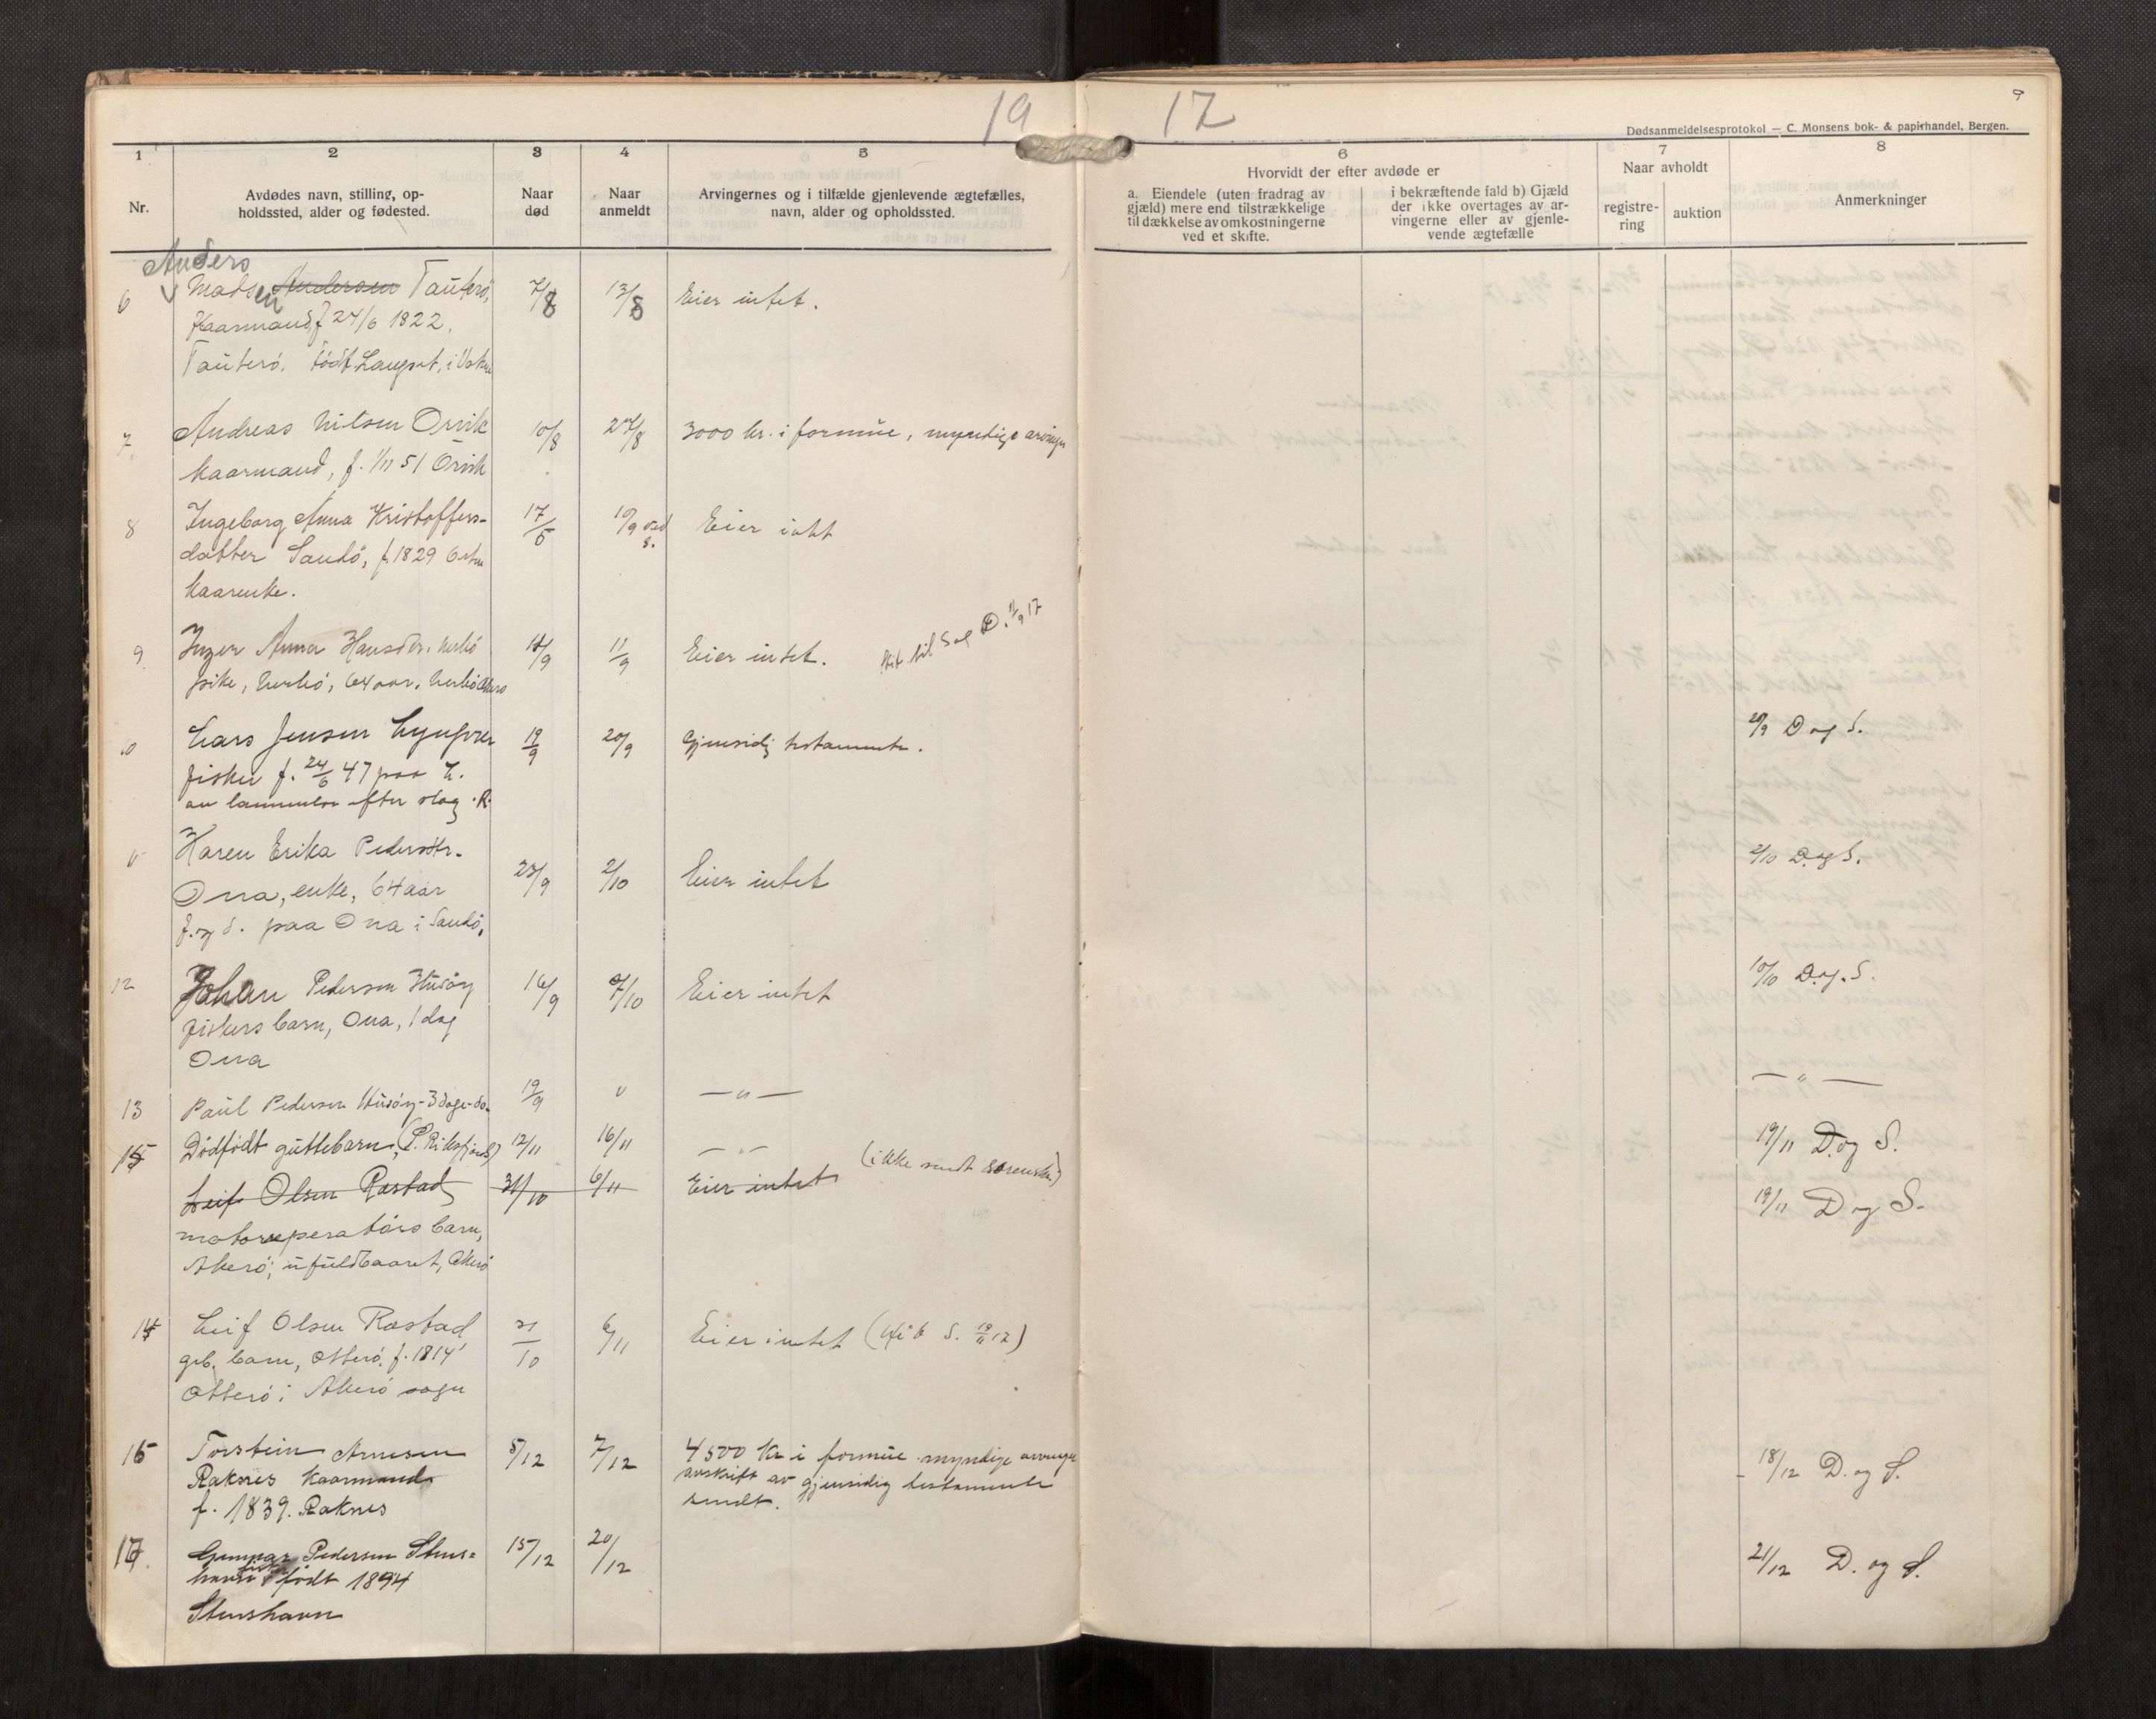 19 17
9
Dødsanmeldelsesprotokol — C. Monsens bok- & papirhandel, Bergen.
1 2 3 4 5 6 7 8
Nr.
Avdødes navn, stilling, op-
holdssted, alder og fødested.
Naar
død
Naar
anmeldt
Arvingernes og i tilfælde gjenlevende ægtefælles,
navn, alder og opholdssted.
Hvorvidt der efter avdøde er
a. Eiendele (uten fradrag av
gjæld) mere end tilstrækkelige
til dækkelse av omkostningerne
ved et skifte.
i bekræftende fald b) Gjæld
der ikke overtages av ar-
vingerne eller av gjenle-
vende ægtefælle
Naar avholdt
registre-
ring
auktion
Anmerkninger
Anders
6 Madsen Andersen Tauterö, 7/8 13/8 Eier intet.
Kaarmand, f 24/6 1822.
Tauterö. Född Langset, i
7 Andreas Nilsen Orvik 10/8 27/8 3000 kr. i formue, myndige arvinger
kaarmand, f. 1/11 51 Orvik
8 Ingeborg Anna Kristoffers- 17/5 10/9 ved s. Eier intet
datter Sandö, f. 1829
kaarenke.
9 Inger Anna Hansdtr. 11/9 Eier intet. til Sog D. 11/9 17
pike, 64 aar,
10 Lars Jensen 19/9 20/9 Gjensidig testamente. 20/9 D og S.
fisker f. 24/6 47 paa L.
av lammelse efter slag. R.
11 Karen Erika Pedersdtr. 23/9 2/10 Eier intet 2/10 D. og S.
Ona, enke, 64 aar
f. og d. paa Ona i Sandö.
12 Johan Pedersen Husöy 16/9 9/10 Eier intet 10/10 D. og. S.
fiskers barn, Ona, 1 dag
Ona
13 Paul Pedersen Husöy - 3 dage - do. 19/9 " — " — — " —
15 Dödfödt guttebarn, 12/11 16/11 — " — 19/11 D. og S.
Leif Olsen Rastad 31/10 6/11 Eier intet (ikke sendt sorensk.) 19/11 D og S.
motoroperatörs barn,
Akerö, ufuldbaaret, Akerö
14 Leif Olsen Rastad 31/10 6/11 Eier intet
barn, Otterö, f. 1814
Otterö i Akerö sogn
16 Torstein Arnesen 5/12 7/12 4500 Kr i formue. myndige arvinger 18/12 D. og S.
Raknes kaarmand avskrift av gjensidig testamente
f. 1839. Raknes sendt.
17. Gunnar Pedersen Stens- 15/12 20/12 21/12 D. og S.
født 1894
Stenshavn